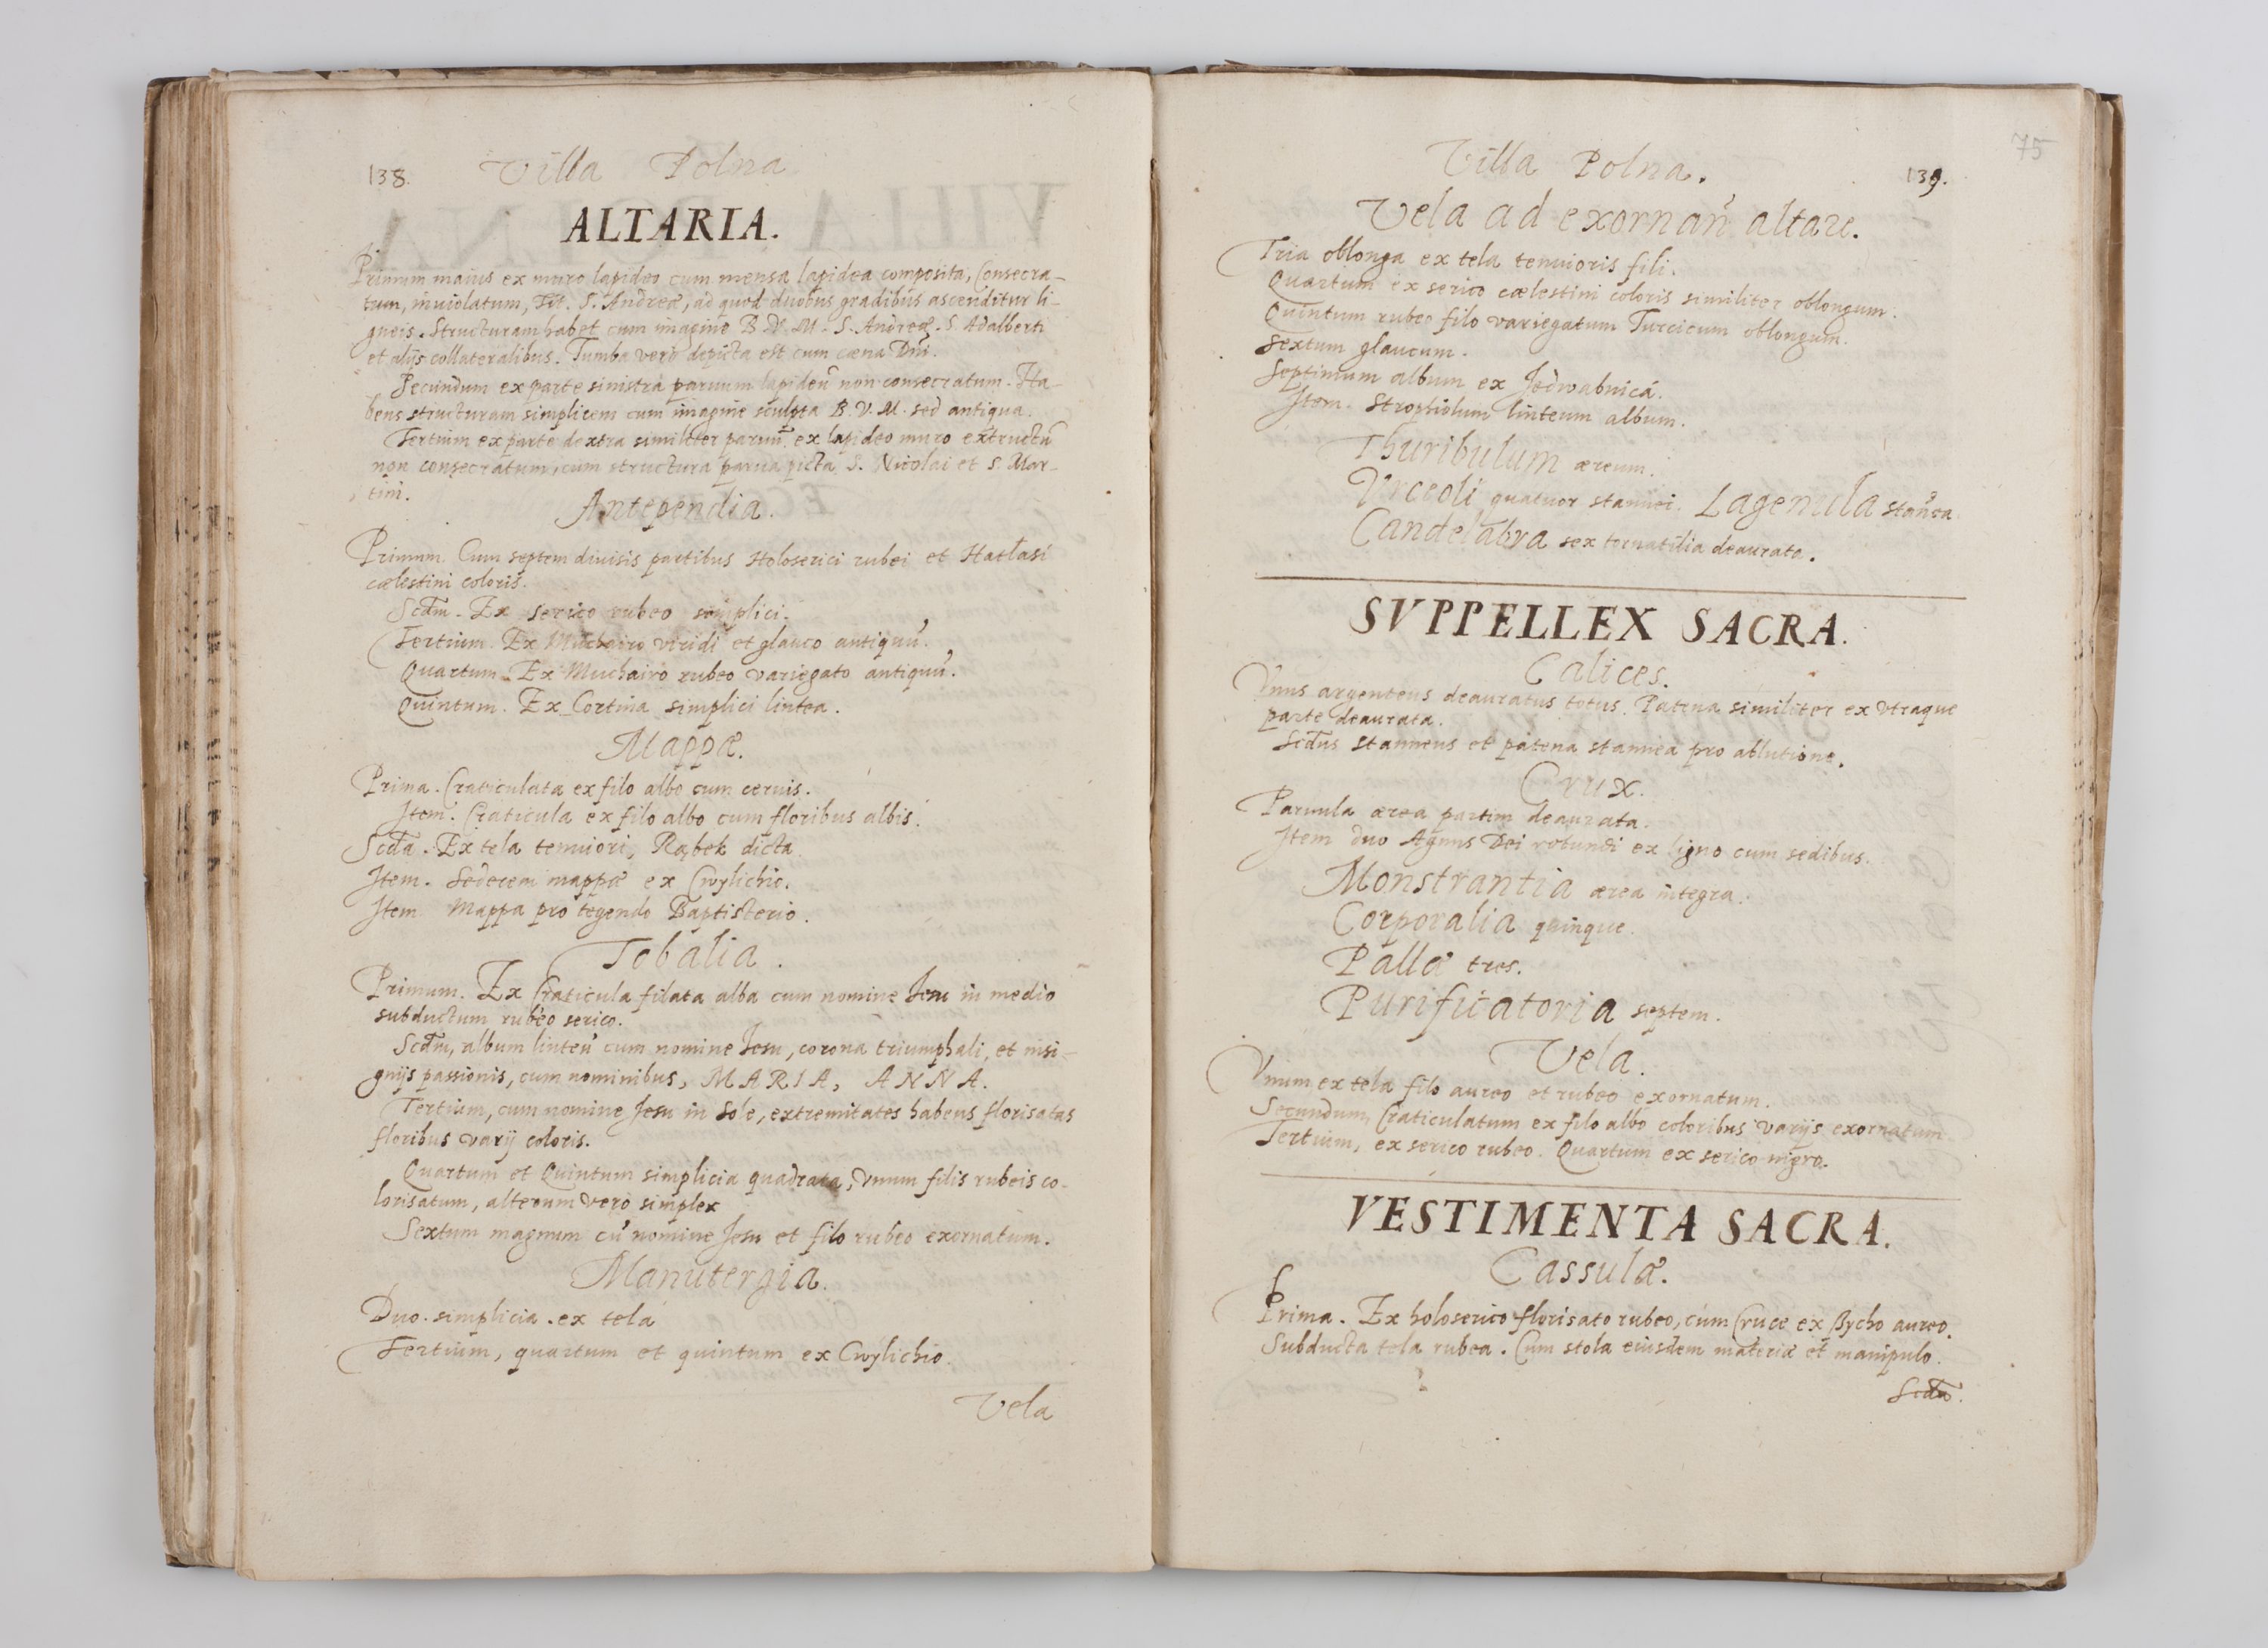 138. Villa Polna
ALTARIA.
Primum maius ex muro lapideo cum mensa lapidea composita, Consecra-
tum, inuiolatum, Tit. S. Andreæ, ad quod duobus gradibus ascenditur li-
gneis. Structuram habet cum imagine B. V. M. S. Andreæ. S. Adalberti
et alijs collateralibus. Tumba verò depicta est cum cæna Dni.
Secundum ex parte sinistra paruum lapideũ non consecratum. Ha-
bens structuram simplicem cum imagine sculpta B. V. M. sed antiqua.
Tertium ex parte dextra similiter paruũ ex lapideo muro extructũ
non consecratum, cum structura parua picta S. Nicolai et S. Mar-
tini.
Antependia.
Primum. Cum septem diuisis partibus Holoserici rubei et Hatłasi
cælestini coloris.
Scdm. Ex serico rubeo simplici.
Tertium. Ex Muchairo viridi et glauco antiquũ.
Quartum. Ex Muchairo rubeo variegato antiquũ.
Quintum. Ex Cortina simplici lintea.
Mappæ.
Prima. Craticulata ex filo albo cum ceruis.
Item. Craticula ex filo albo cum floribus albis.
Scda. Ex tela tenuiori, Rąbek dicta.
Item. Sedecem mappæ ex Cwylichio.
Item Mappa pro tegendo Baptisterio.
Tobalia.
Primum. Ex Craticula filata alba cum nomine Jesu in medio
subductum rubeo serico.
Scdm, album linteũ cum nomine Jesu, corona triumphali, et insi-
gnijs passionis, cum nominibus, MARIA, ANNA.
Tertium, cum nomine Jesu in Sole, extremitates habens florisatas
floribus varij coloris.
Quartum et Quintum simplicia quadrata, Vnum filis rubeis co-
lorisatum, alterum verò simplex
Sextum magnum cũ nomine Jesu et filo rubeo exornatum.
Manutergia.
Duo. simplicia. ex tela
Tertium, quartum et quintum ex Cwylichio.
Vela
75
Villa Polna. 139.
Vela ad exornañ altare.
Tria oblonga ex tela tenuioris fili.
Quartum ex serico cælestini coloris similiter oblongum.
Quintum rubeo filo variegatum Turcicum oblongum.
Sextum glaucum.
Septimum album ex Jedwabnicá.
Item. Strophiolum linteum album.
Thuribulum æreum.
Vrceoli quatuor stannei. Lagenula stañea
Candelabra sex tornatilia deaurata.
SVPPELLEX SACRA.
Calices.
Vnus argenteus deauratus totus. Patena similiter ex vtraque
parte deaurata.
Scdus stanneus et patena stannea pro ablutione.
Crux.
Paruula ærea partim deaurata.
Item duo Agnus Dei rotundi ex ligno cum sedibus.
Monstrantia ærea integra.
Corporalia quinque.
Pallæ tres.
Purificatoria septem.
Vela.
Vnum ex tela filo aureo et rubeo exornatum.
Secundum, Craticulatum ex filo albo coloribus varijs exornatum
Tertium, ex serico rubeo. Quartum ex serico nigro.
VESTIMENTA SACRA.
Cassulæ.
Prima. Ex holoserico florisato rubeo, cum Cruce ex Bycho aureo.
Subducta tela rubea. Cum stola eiusdem materiæ et manipulo.
Scda.